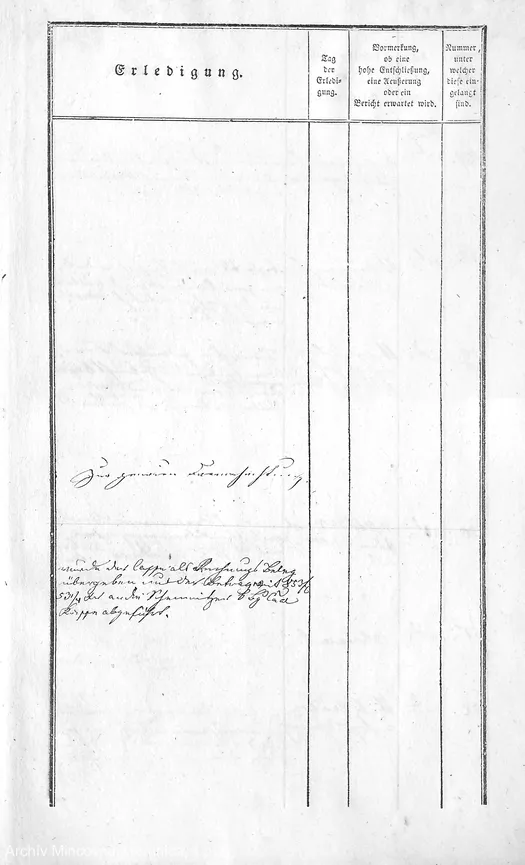 Erledigung.
Tag
der
Erledi-
gung.
Vormerkung,
ob eine
hohe Entschließung,
eine Aeußerung
oder ein
Bericht erwartet wird.
Nummer,
unter
welcher
diese ein-
gelangt
sind.
Zur genauen
wurde der Cassa als Rechnungs Beleg
übergeben und der Betrag
an die Schemnitzer
abgeführt.
Archiv